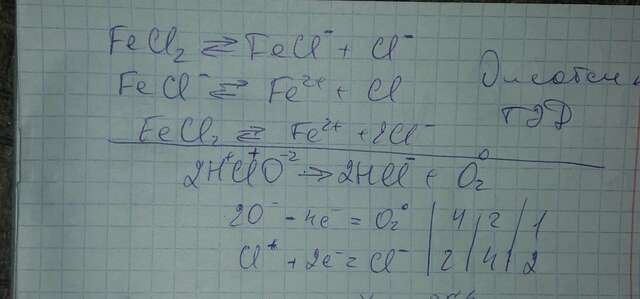 FeCl₂ ⇄ FeCl⁻ + Cl⁻
FeCl⁻ ⇄ Fe²⁺ + Cl
FeCl₂ ⇄ Fe²⁺ + 2Cl⁻
ТЭД
2H⁺Cl⁺O⁻² → 2HCl⁻ + O₂⁰
2O⁻ - 4e⁻ = O₂⁰ | 4 | 2 | 1
Cl⁺ + 2e⁻ = Cl⁻ | 2 | 4 | 2